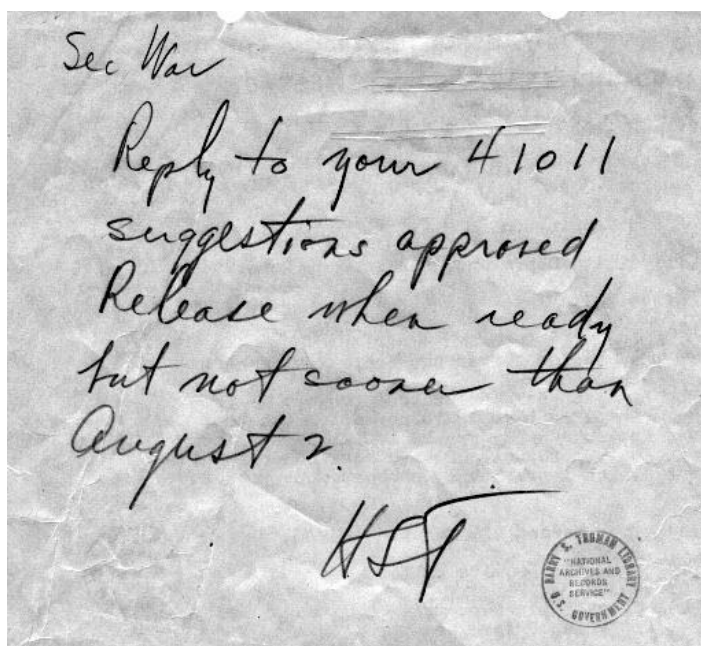 Sec War
Reply to your 41011
suggestions approved
Release when ready
but not sooner than
August 2.
HST
HARRY S. TRUMAN LIBRARY
"NATIONAL
ARCHIVES AND
RECORDS
SERVICE"
U.S. GOVERNMENT